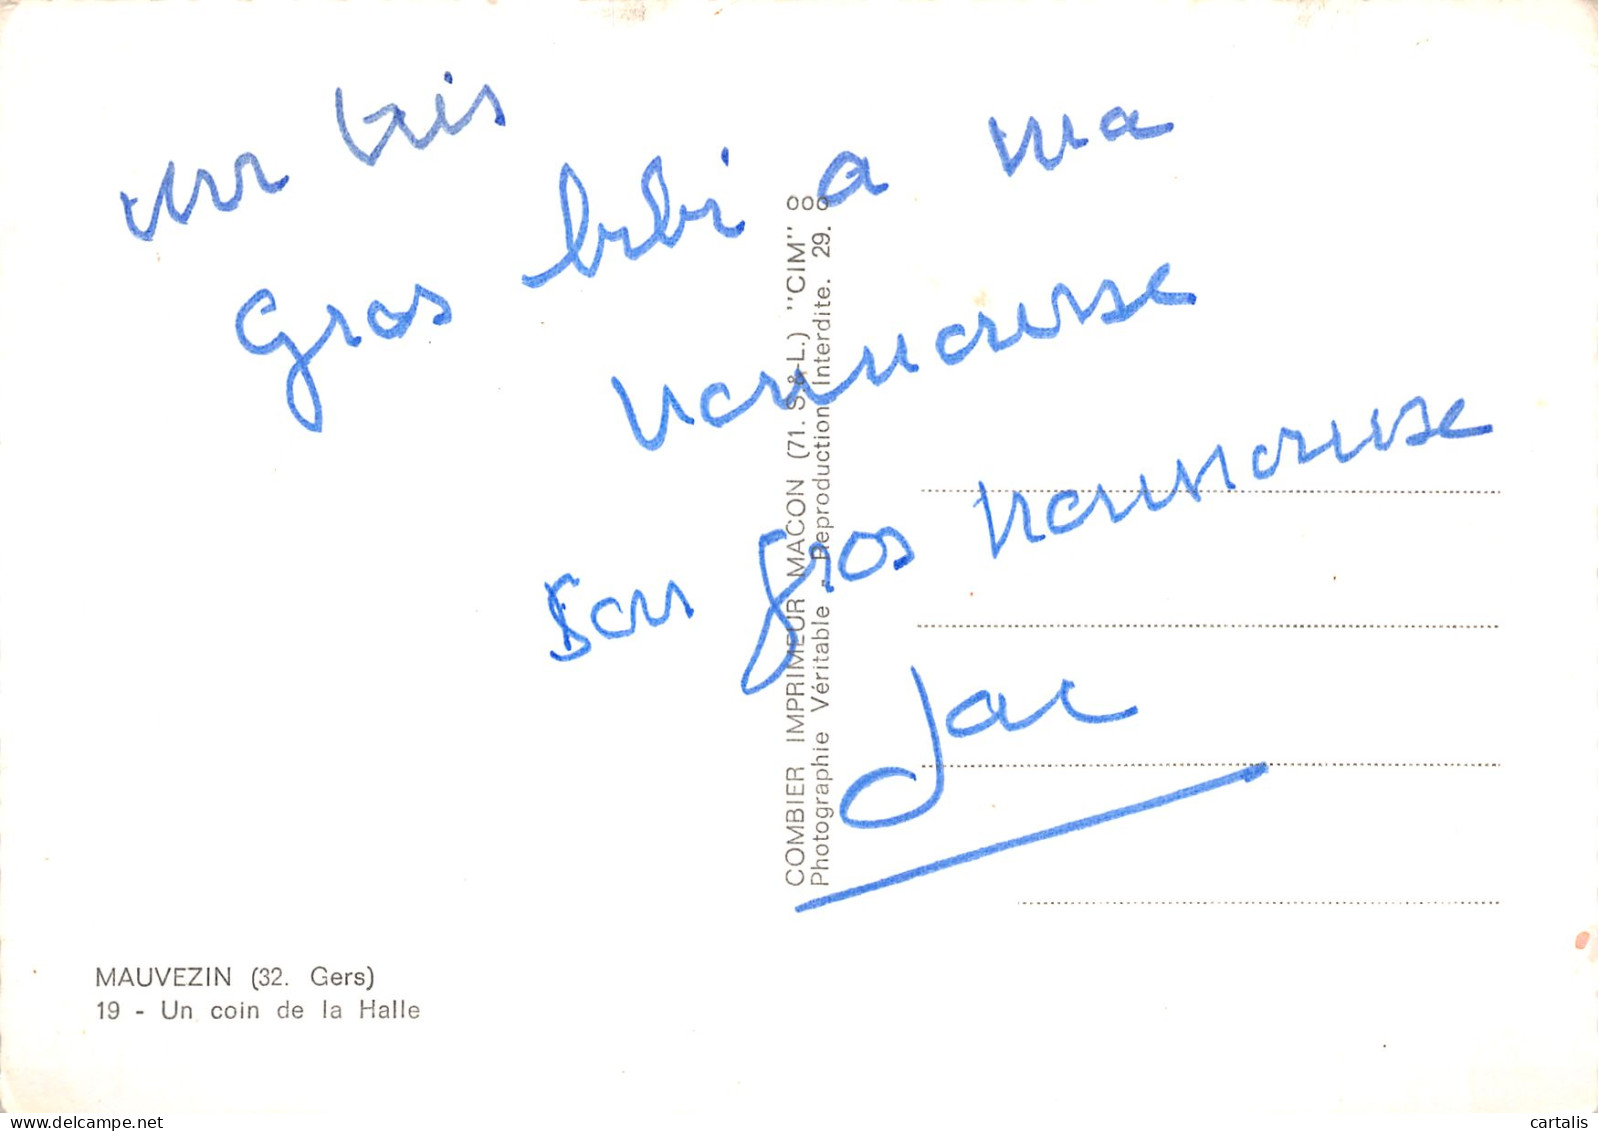 un tris
Gros bibi a ma
nounourse
son gros nounourse
Jac
COMBIER IMPRIMEUR MACON (71. S.&-L.) "CIM"
Photographie Véritable - Reproduction Interdite. 29.
MAUVEZIN (32. Gers)
19 - Un coin de la Halle
cartalis